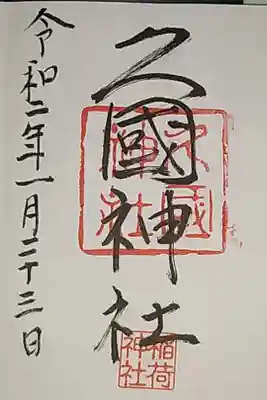 久國神社
令和二年一月二十三日
久國神社
稲荷神社